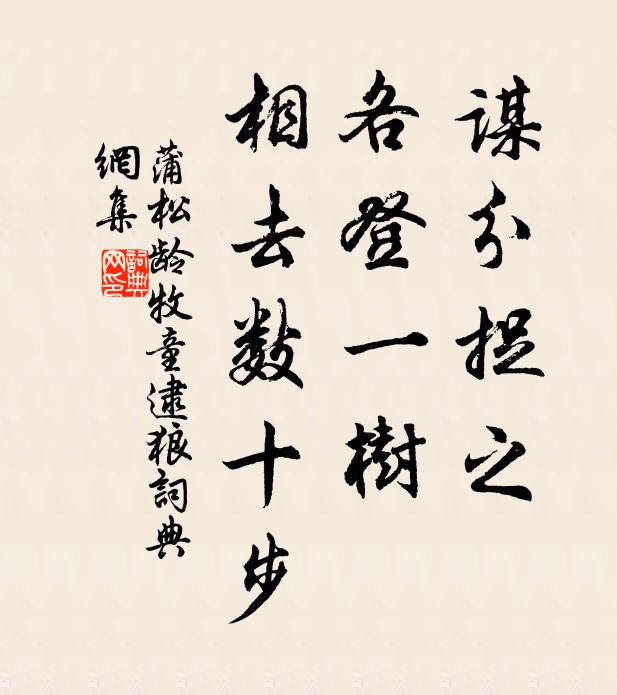 谋分捉之
各登一樹
相去数十步
蒲松龄牧童逮狼詞典
網集
詞典
网印